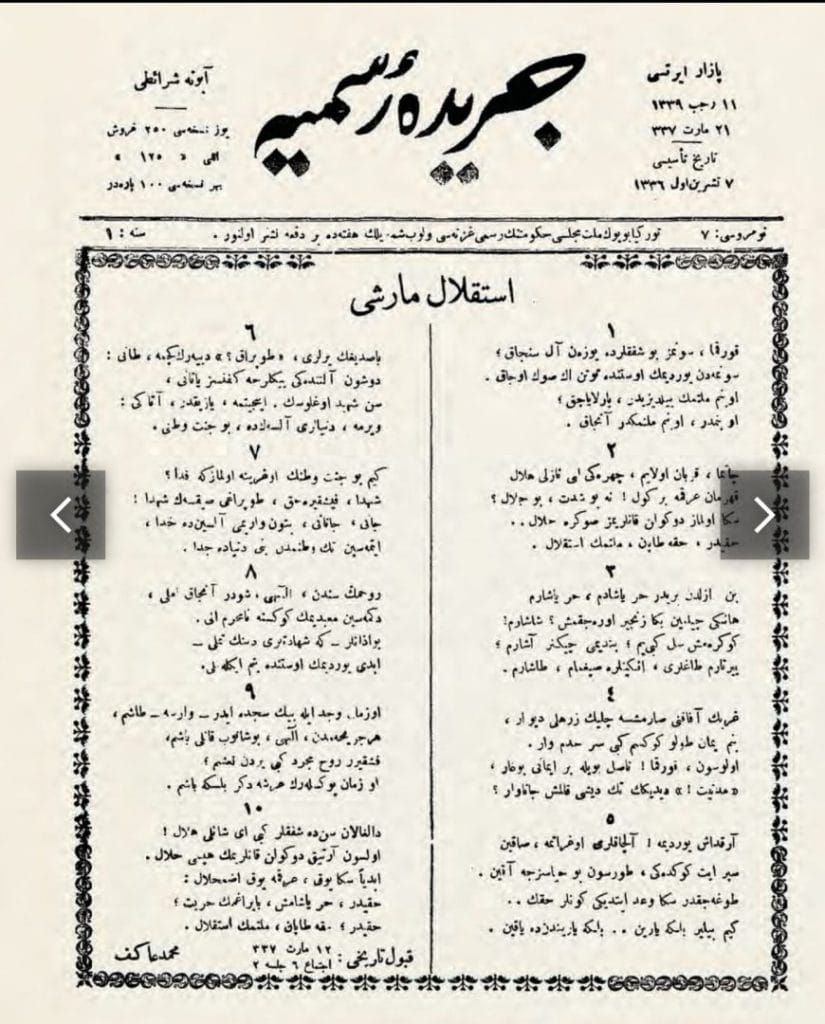 پازار ایرتسی
١١ رجب ١٣٣٩
٢١ مارت ٣٣٧
تاریخ تأسیسی
٧ تشرین اول ١٣٣٦
جریدهٔ رسمیه
آبونه شرائطی
یوز نسخه‌سی ٢٥٠ غروش
اللی « ١٢٥ »
بهر نسخه‌سی ١٠٠ پاره‌در
نومروسی: ٧
تورکیا بویوك ملت مجلسی حکومتنك رسمی غزته‌سی اولوب شمدیلك هفته‌ده بر دفعه نشر اولنور .
سنه : ١
استقلال مارشی
١
قورقما ، سونمز بو شفقلرده یوزەن آل سنجاق ؛
سونمەدن یوردیمك اوستنده توتن اك صوك اوجاق .
او بنم ملتمك ییلدیزیدر، پارلایاجق ؛
او بنمدر ، او بنم ملتمکدر آنجاق .
٢
چاتما ، قربان اولایم ، چهره‌کی ای نازلی هلال
قهرمان عرقمه بر کول ! نه بو شدت ، بو جلال ؟
سکا اولماز دوکولن قانلریمز صوکره حلال . .
حقیدر ، حقه طاپان ، ملتمك استقلال .
٣
بن ازلدن بریدر حر یاشادم ، حر یاشارم
هانکی چیلغین بکا زنجیر اوره‌جقمش ؟ شاشارم!
کوکره‌مش سل کبی‌یم ؛ بندیمی چیکنر آشارم ؛
ییرتارم طاغلری ، انکینلره صیغمام ، طاشارم .
٤
غربك آفاقنی صارمشسه چلیك زرهلی دیوار ،
بنم ایمان طولو کوکسم کبی سر حدم وار .
اولوسون ، قورقما ! ناصل بویله بر ایمانی بوغار ؛
« مدنیت ! » دیدیکك تك دیشی قالمش جاناوار ؟
٥
آرقداش یوردیمه ! آلچاقلری اوغراتمه ، صاقین
سپر ایت کوکده‌کی ، طورسون بو حیاسزجه آقین .
طوغه‌جقدر سکا وعد ایتدیکی کونلر حقك . .
کیم بیلیر بلکه یارین . . بلکه یاریندن‌ده یاقین .
٦
باصدیغك یرلری ، «طوپراق ؟» دییه‌رك کچمه ، طانی :
دوشون آلتنده‌کی بیکلرجه کفنسز یاتانی ،
سن شهید اوغلوسك . اینجیتمه ، یازیقدر ، آتاکی :
ویرمه ، دنیالری آلسه‌ك‌ده ، بو جنت وطنی .
٧
کیم بو جنت وطنك اوغرینه اولمازکه فدا ؟
شهدا ، فیشقیره‌جق ، طوپراغی صیقسه‌ك شهدا !
جانی ، جانانی ، بتون واریمی آلسین‌ده خدا ،
ایتمه‌سین تك وطنمدن بنی دنیاده جدا .
٨
روحمك سندن ، الٓهی ، شودر آنجاق املی ،
دکمه‌سین معبدیمك کوکسنه نامحرم الی .
بو اذانلر ــ که شهادتلری دینك تملی ــ
ابدی یوردیمك اوستنده بنم ایکله‌لی.
٩
او زمان وجد ایله بیك سجده ایدر ــ وارسه ــ طاشم ،
هر جریحه‌مدن ، الٓهی ، بوشانوب قانلی یاشم،
فیشقیرر روح مجرد کبی یردن نعشم ؛
او زمان یوکسله‌رك عرشه دکر بلکه باشم .
١٠
دالغالان سن‌ده شفقلر کبی ای شانلی هلال !
اولسون آرتیق دوکولن قانلریمك هپسی حلال .
ابدیاً سکا یوق ، عرقمه یوق اضمحلال :
حقیدر ، حر یاشامش ، بایراغمك حریت ؛
حقیدر ؛ حقه طاپان ، ملتمك استقلال .
قبول تاریخی : ١٢ مارت ٣٣٧
اجتماع ٦ جلسه ٢
محمد عاکف